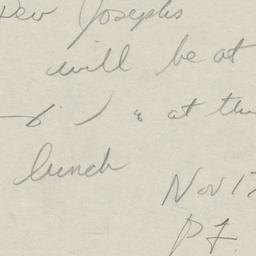 Dev Josephs
will be at
at the
lunch
Nov 17
P.F.